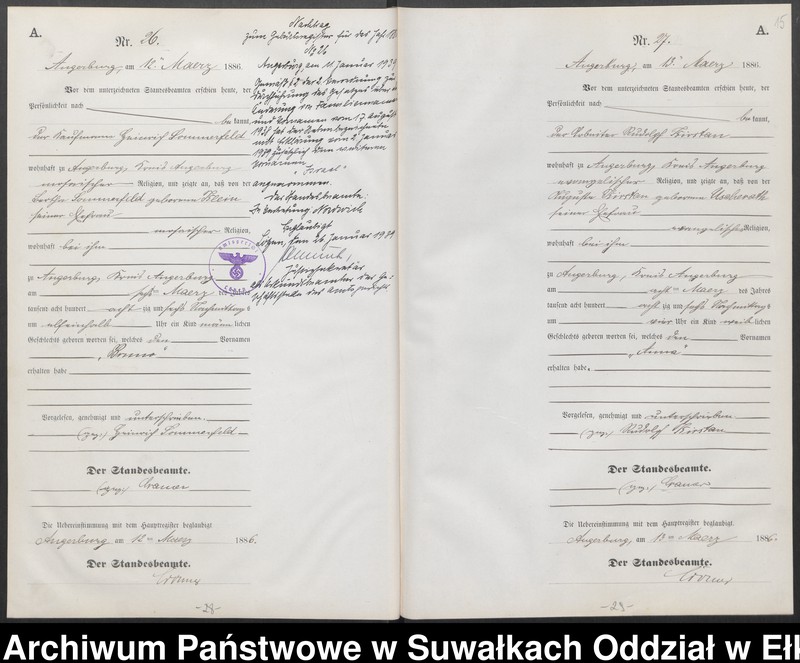 A.
Nr. 26.
Angerburg, am 12ten Maerz 1886.
Vor dem unterzeichneten Standesbeamten erschien heute, der
Persönlichkeit nach
bekannt,
der Kaufmann Heinrich Sommerfeld
wohnhaft zu Angerburg, Kreis Angerburg
mosaischer Religion, und zeigte an, daß von der
Bertha Sommerfeld geborenen
seiner Ehefrau
mosaischer Religion,
wohnhaft bei ihm
zu Angerburg, Kreis Angerburg
am Maerz des Jahres
tausend acht hundert acht zig und sechs Vormittags
um elfeinhalb Uhr ein Kind männlichen
Geschlechts geboren worden sei, welches den Vornamen
„Bruno"
erhalten habe
Vorgelesen, genehmigt und unterschrieben
(gez.) Heinrich Sommerfeld
Der Standesbeamte.
(gez.) Cramer
Die Uebereinstimmung mit dem Hauptregister beglaubigt
Angerburg am 12ten Maerz 1886.
Der Standesbeamte.
Cramer
-28-
Nachtrag
zum Geburtsregister für das Jahr
No 26
Angerburg, am 11. Januar 1939
Gemäß § 2 der 2. Verordnung zur
Durchführung des Gesetzes über die
Änderung von Familiennamen
und Vornamen vom 17. August
1938 hat der Nebenbezeichnete
mit Erklärung vom 2. Januar
1939 zusätzlich den weiteren
Vornamen
„Israel"
angenommen.
Der Standesbeamte:
In Vertretung
Beglaubigt
Lötzen, den 26. Januar 1939
Justizsekretär
als Urkundsbeamter der Ge-
schäftsstelle des Amtsgerichts
15
A.
Nr. 27.
Angerburg, am 13ten Maerz 1886.
Vor dem unterzeichneten Standesbeamten erschien heute, der
Persönlichkeit nach
bekannt,
der Arbeiter Rudolph Kirstan
wohnhaft zu Angerburg, Kreis Angerburg
evangelischer Religion, und zeigte an, daß von der
Auguste Kirstan geborenen
seiner Ehefrau
evangelischer Religion,
wohnhaft bei ihm
zu Angerburg, Kreis Angerburg
am acht Maerz des Jahres
tausend acht hundert acht zig und sechs Nachmittags
um vier Uhr ein Kind weiblichen
Geschlechts geboren worden sei, welches den Vornamen
„Anna"
erhalten habe.
Vorgelesen, genehmigt und unterschrieben
(gez.) Rudolph Kirstan
Der Standesbeamte.
(gez.) Cramer
Die Uebereinstimmung mit dem Hauptregister beglaubigt
Angerburg, am 13ten Maerz 1886.
Der Standesbeamte.
Cramer
-29-
Archiwum Państwowe w Suwałkach Oddział w Ełk